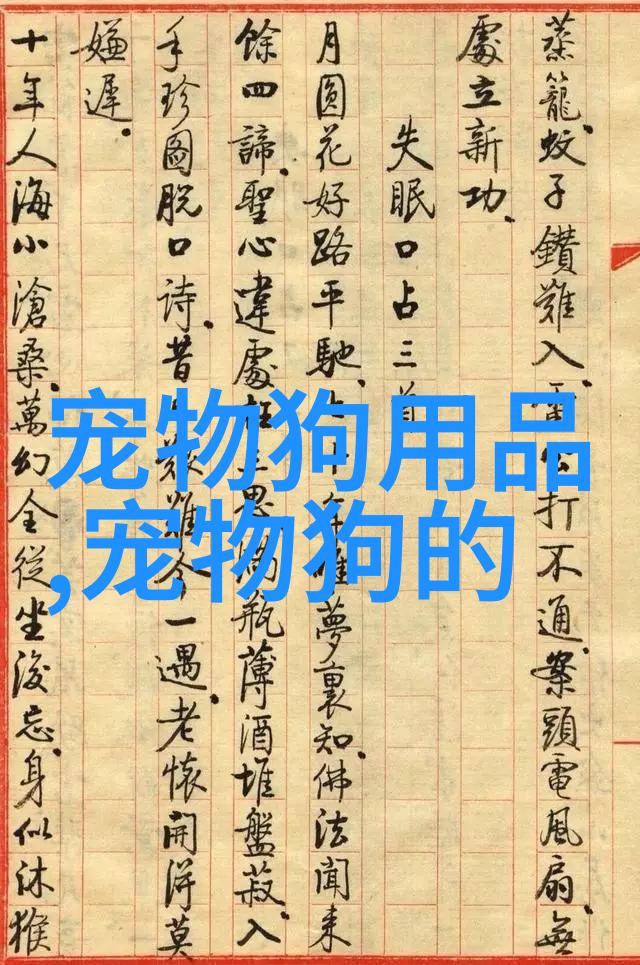 蒸籠.蚊子鑽難入.打不通.案頭電風扇.無
處立新功.
失眠口占三首
月圓花好路平馳.十年唯夢裏知.佛法聞來
餘四諦.聖心違處在三思.滿瓶薄酒堆盤菽.入
手珍圖脫口詩.昔艱難今一遇.老懷開得莫
嫌遲.
十年人海小滄桑.萬幻全從坐後忘.身似沐猴
宠物狗用品
,宠物狗的